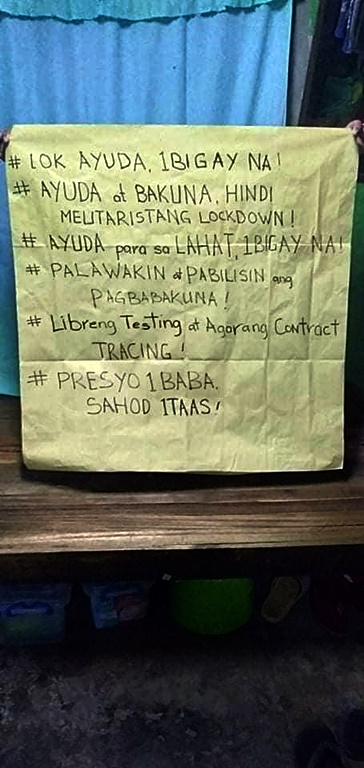 # 10K AYUDA, IBIGAY NA!
# AYUDA at BAKUNA, HINDI
MELITARISTANG LOCKDOWN!
# AYUDA para sa LAHAT, IBIGAY NA!
# PALAWAKIN at PABILISIN ang
PAGBABAKUNA!
# Libreng Testing at Agarang Contract
TRACING!
# PRESYO IBABA.
SAHOD ITAAS!